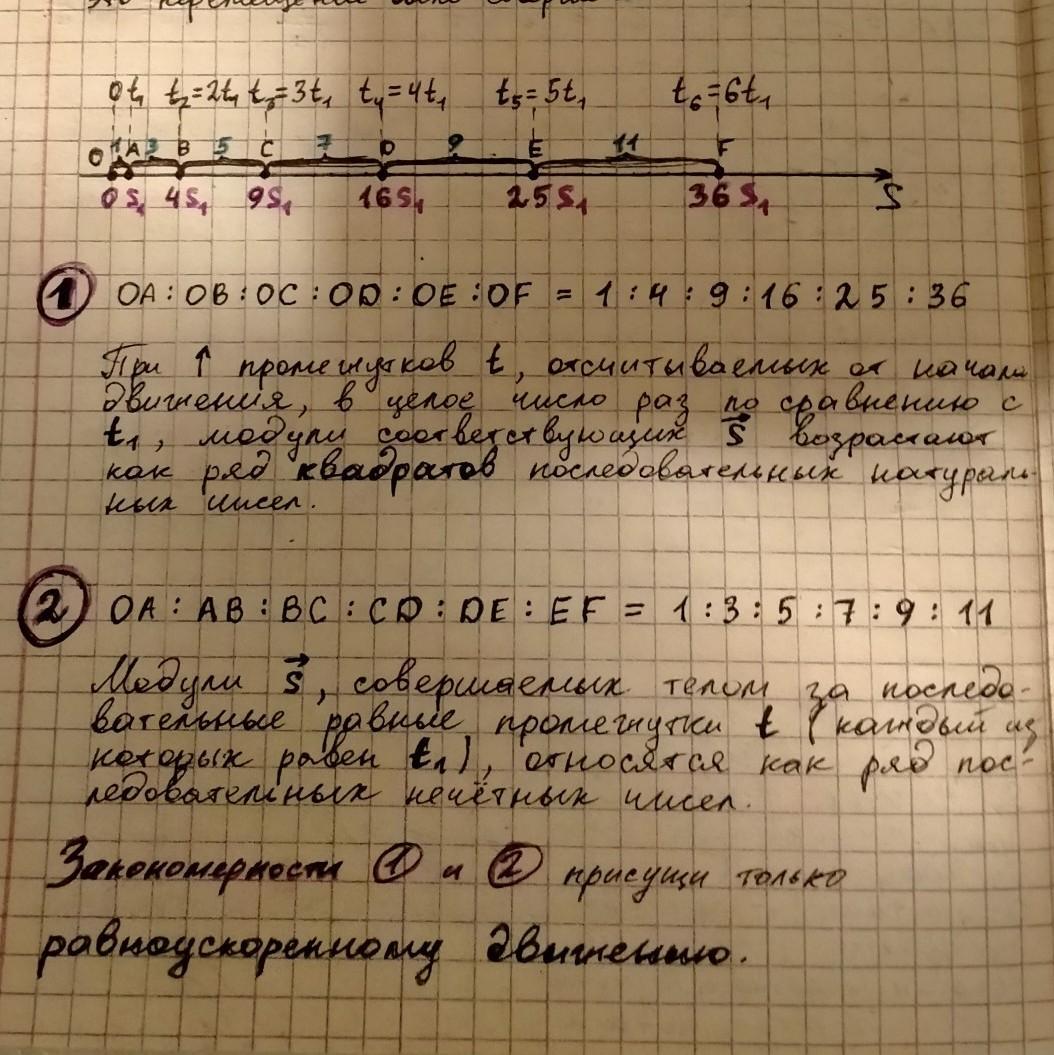 перемещения
0 t₁ t₂=2t₁ t₃=3t₁ t₄=4t₁ t₅=5t₁ t₆=6t₁
O 1 A 3 B 5 C 7 D 9 E 11 F
0 S₁ 4S₁ 9S₁ 16S₁ 25S₁ 36S₁ S
① OA : OB : OC : OD : OE : OF = 1 : 4 : 9 : 16 : 25 : 36
При ↑ промежутков t, отсчитываемых от начала
движения, в целое число раз по сравнению с
t₁, модули соответствующих s⃗ возрастают
как ряд квадратов последовательных натураль-
ных чисел.
② OA : AB : BC : CD : DE : EF = 1 : 3 : 5 : 7 : 9 : 11
Модули s⃗, совершаемых телом за последо-
вательные равные промежутки t (каждый из
которых равен t₁), относятся как ряд пос-
ледовательных нечётных чисел.
Закономерности ① и ② присущи только
равноускоренному движению.